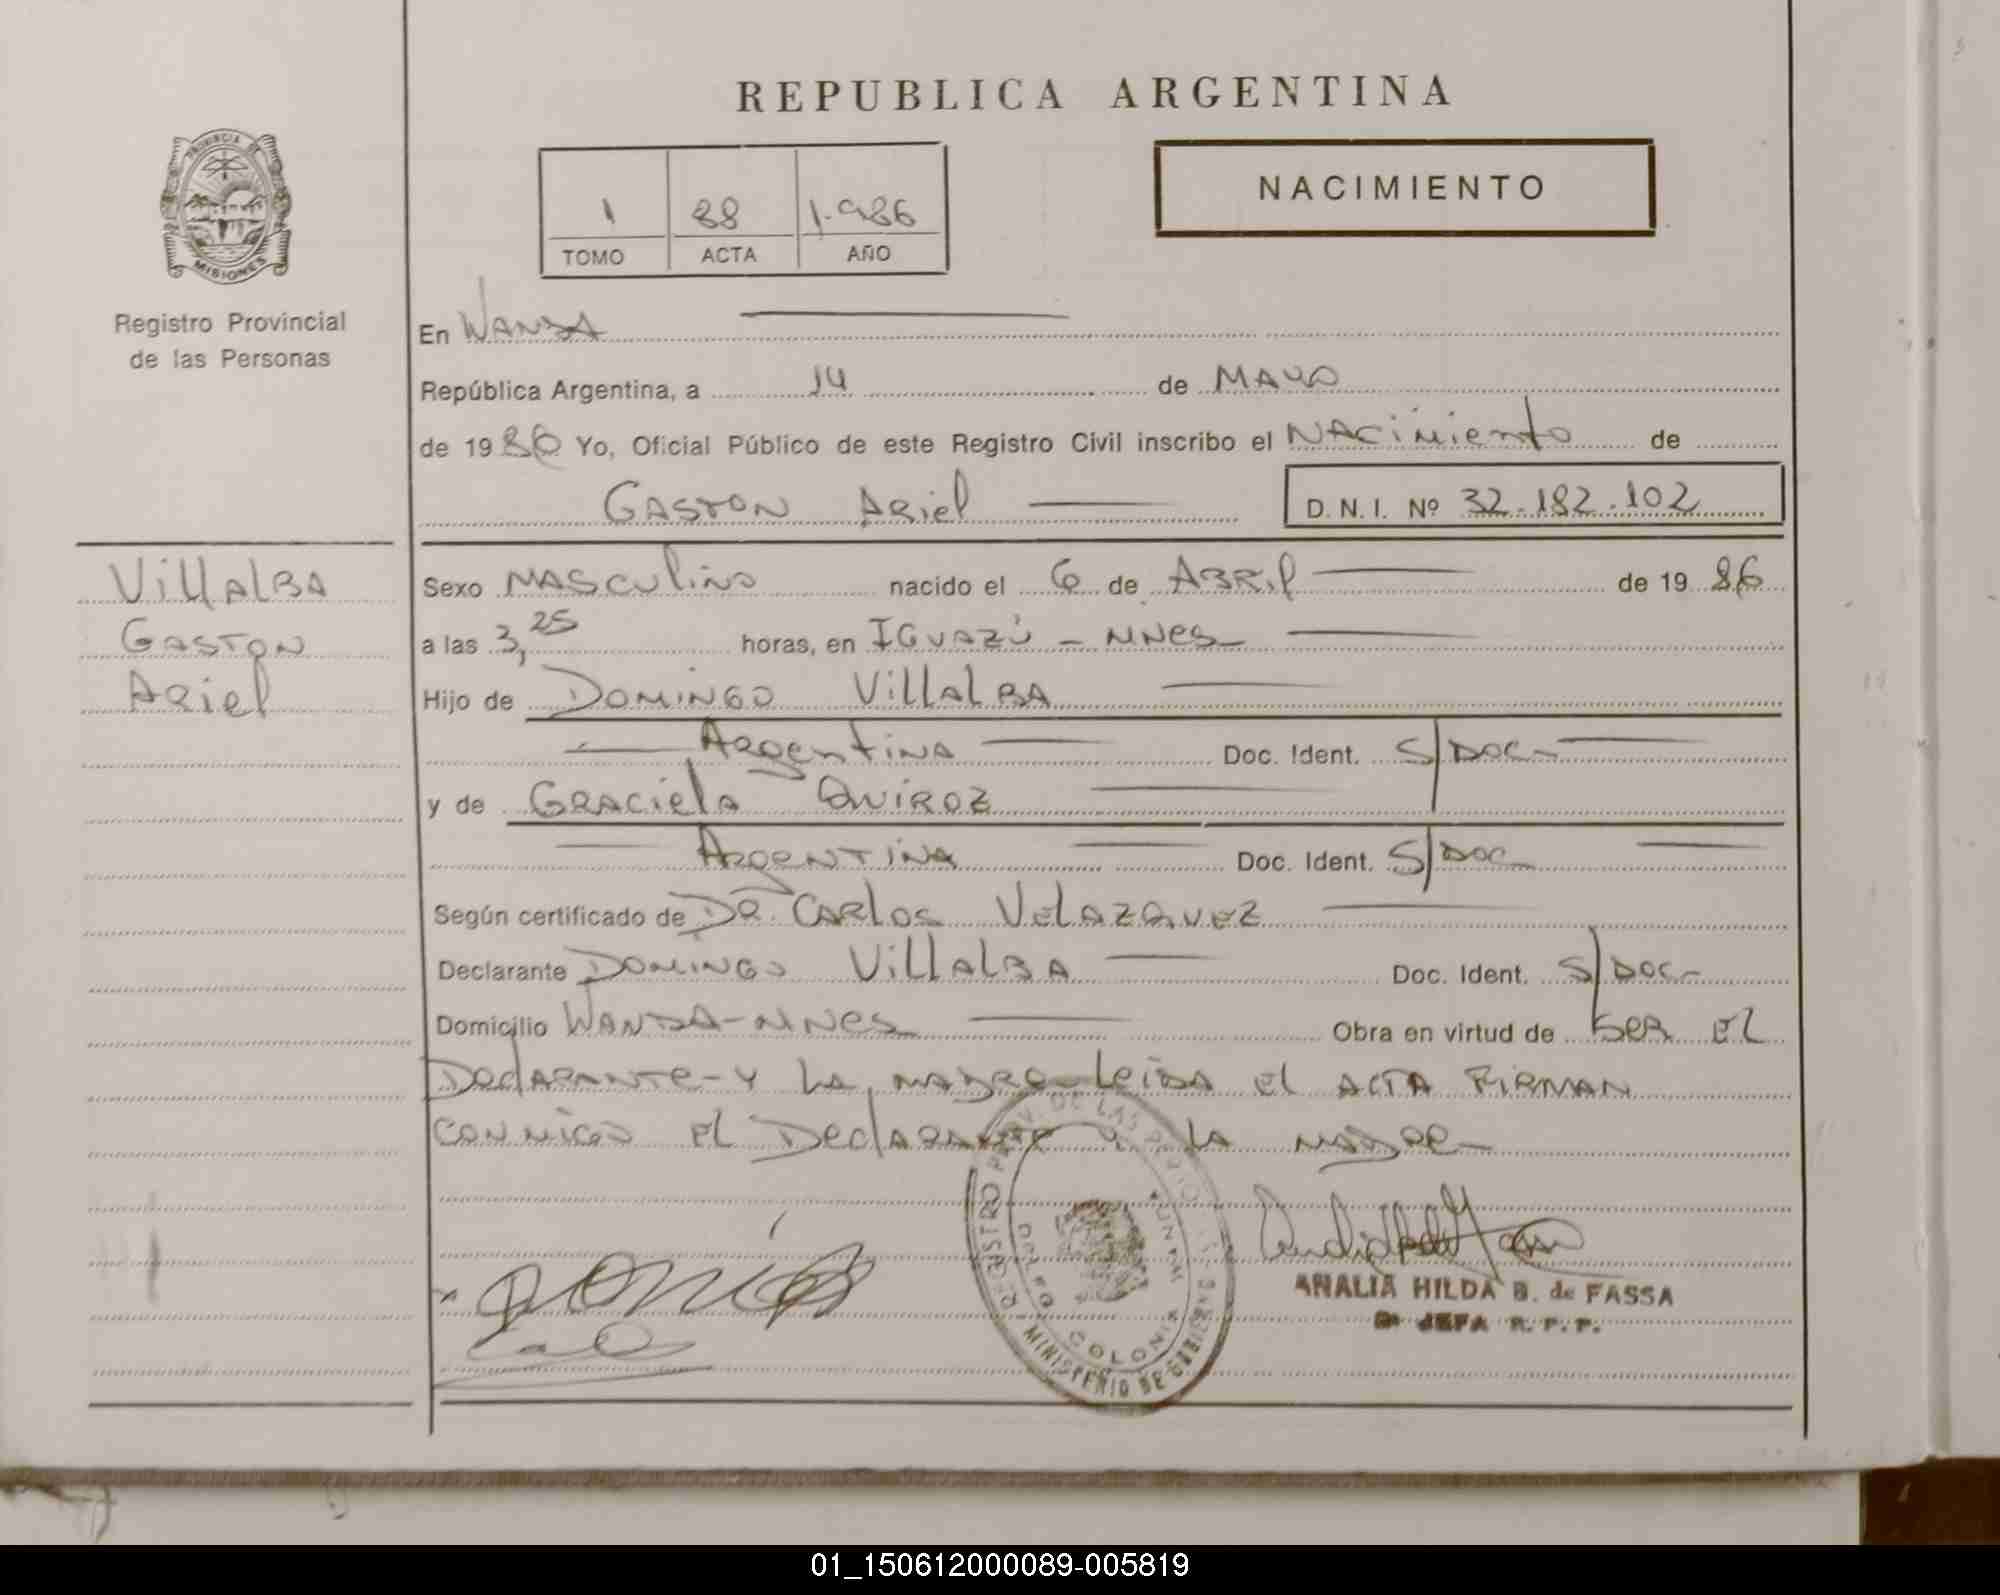 REPUBLICA ARGENTINA
PROVINCIA DE
MISIONES
Registro Provincial
de las Personas
1 88 1.986
TOMO ACTA AÑO
NACIMIENTO
En WANDA
República Argentina, a 14 de MAYO
de 1986 Yo, Oficial Público de este Registro Civil inscribo el NACiMiento de
GASTON ARiel D.N.I. Nº 32.182.102
VillAlBA
GASTON
ARiel
Sexo MASCUliNO nacido el 6 de ABRil de 19 86
a las 3,25 horas, en IGUAZÚ - MNES
Hijo de DOMiNGO VillAlBA
ARgentiNA Doc. Ident. S/DOC-
y de GRACielA QUiROZ
ARGENTiNA Doc. Ident. S/DOC
Según certificado de DR. CARlOS VElAZQUEZ
Declarante DOMiNGO VillAlBA Doc. Ident. S/DOC-
Domicilio WANDA-MNES Obra en virtud de SER El
DEClARANTE-Y LA MADRE-LEiDA El ACTA FiRMAN
CONMIGO El DEClARANTE Y LA MADRE-
REGISTRO PROV. DE LAS PERSONAS
COLONIA WANDA
MINISTERIO DE GOBIERNO
ANALIA HILDA B. de FASSA
JEFA R.P.P.
01_150612000089-005819